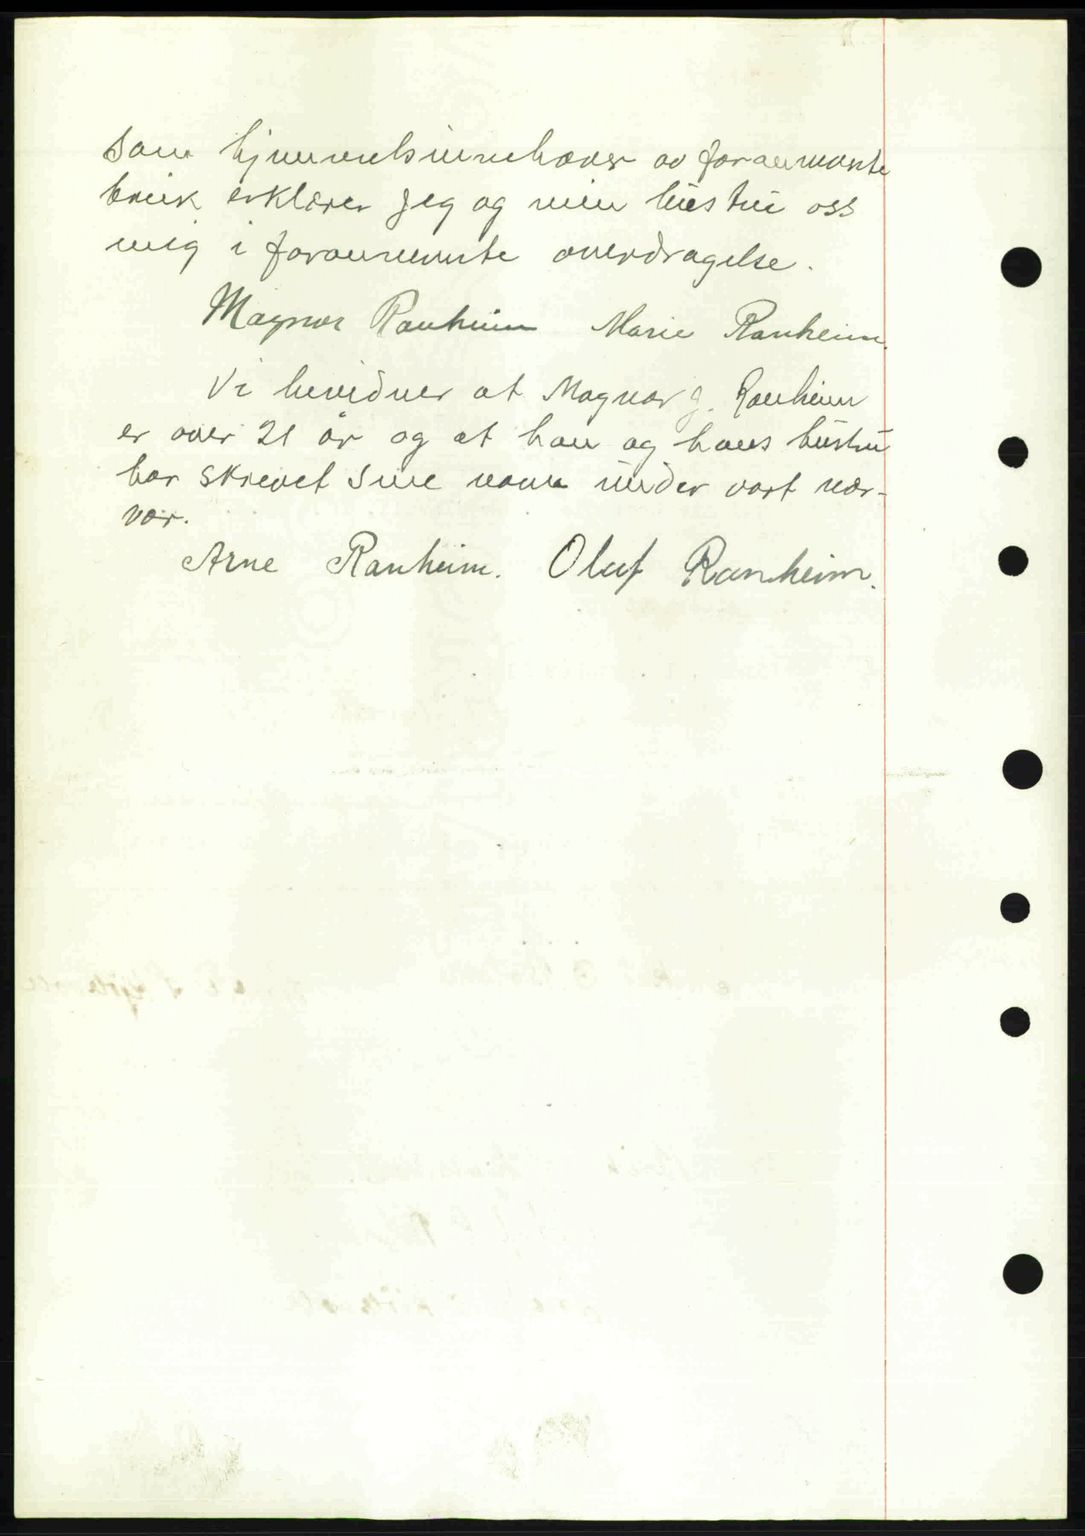 Som hjemmelsinnehaver av forannevnte
bruk erklærer jeg og min hustru oss
enig i forannevnte overdragelse.
Magnar Ranheim Marie Ranheim.
Vi bevidner at Magnar J. Ranheim
er over 21 år og at han og hans hustru
har skrevet sine navn under vort nær-
vær.
Arne Ranheim. Oluf Ranheim.